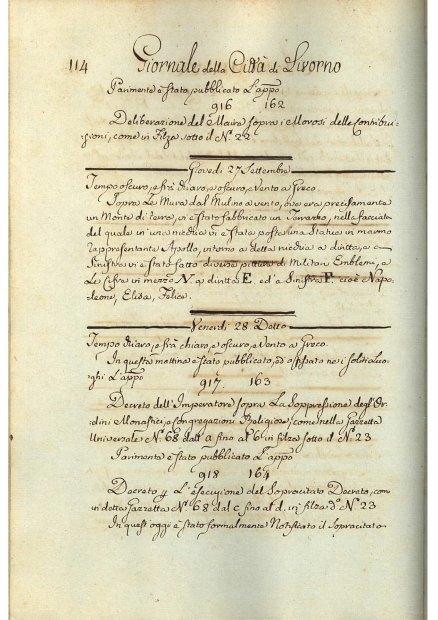 114 Giornale della Città di Livorno
Parimente è stato pubblicato L'appo
916 162
Deliberazione del Maire sopra i Morosi delle Contribu-
zioni, come in Filza sotto il N. 22
Giovedì 27 Settembre
Tempo oscuro, e frà chiaro, e oscuro, e Vento a Greco
Sopra Le Mura dal Mulino a vento, ove era precisamente
un Monte di terra, vi è stato fabbricato un Terrazzo, nella facciata
del quale in una nicchia vi è stata posta una Statua in marmo
rappresentante Apollo, intorno a detta nicchia a diritta, e
Sinistra vi è stato fatto diversa pittura di Militari Emblemi, e
Le Cifra in mezzo N. a diritta E. ed a Sinistra F. cioè Napo-
leone, Elisa, Felice.
Venerdì 28 Detto
Tempo chiaro, e frà chiaro, e oscuro, e Vento a Greco
In questa mattina è stato pubblicato, ed affissato nei soliti Luo-
ghi L'appo
917 163
Decreto dell'Imperatore sopra La Soppressione degl'Or-
dini Monastici, e Congregazioni Religiose, come nella Gazzetta
Universale N. 68 dall' a fino al b in filza sotto il N. 23
Parimente è stato pubblicato L'appo
918 164
Decreto L'Esecuzione del Sopracitato Decreto, come
in detta Gazzetta N. 68 dal c fino al d. in filza d.º N. 23
In quest'oggi è stato formalmente Notificato il Sopracitato